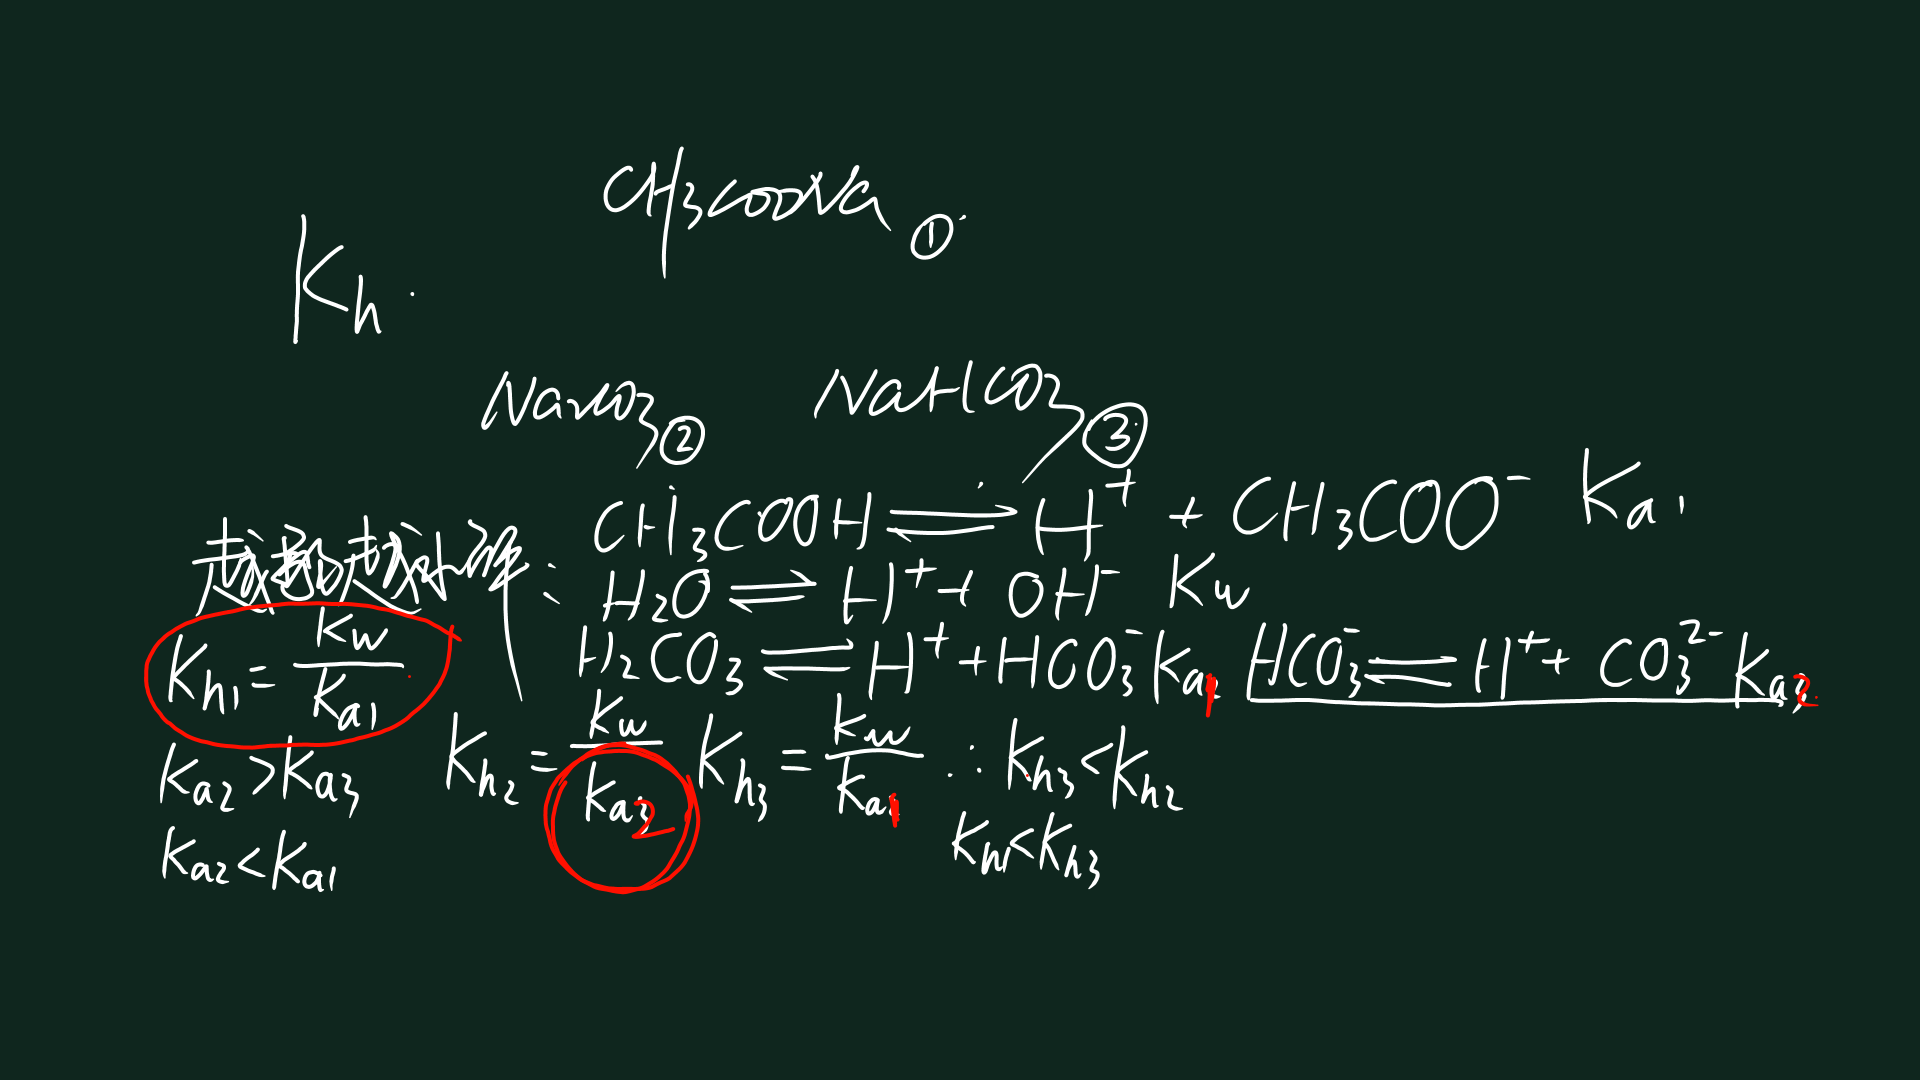 CH₃COONa ①
Kh
Na₂CO₃ ② NaHCO₃ ③
CH₃COOH ⇌ H⁺ + CH₃COO⁻ Ka₁
越弱越水解:
H₂O ⇌ H⁺ + OH⁻ Kw
H₂CO₃ ⇌ H⁺ + HCO₃⁻ Ka₁ HCO₃⁻ ⇌ H⁺ + CO₃²⁻ Ka₂
Kh₁ = Kw/Ka₁
Kh₂ = Kw/Ka₂ Kh₃ = Kw/Ka₁ ∴ Kh₃ < Kh₂
Ka₂ > Ka₃
Kh₁ < Kh₃
Ka₂ < Ka₁